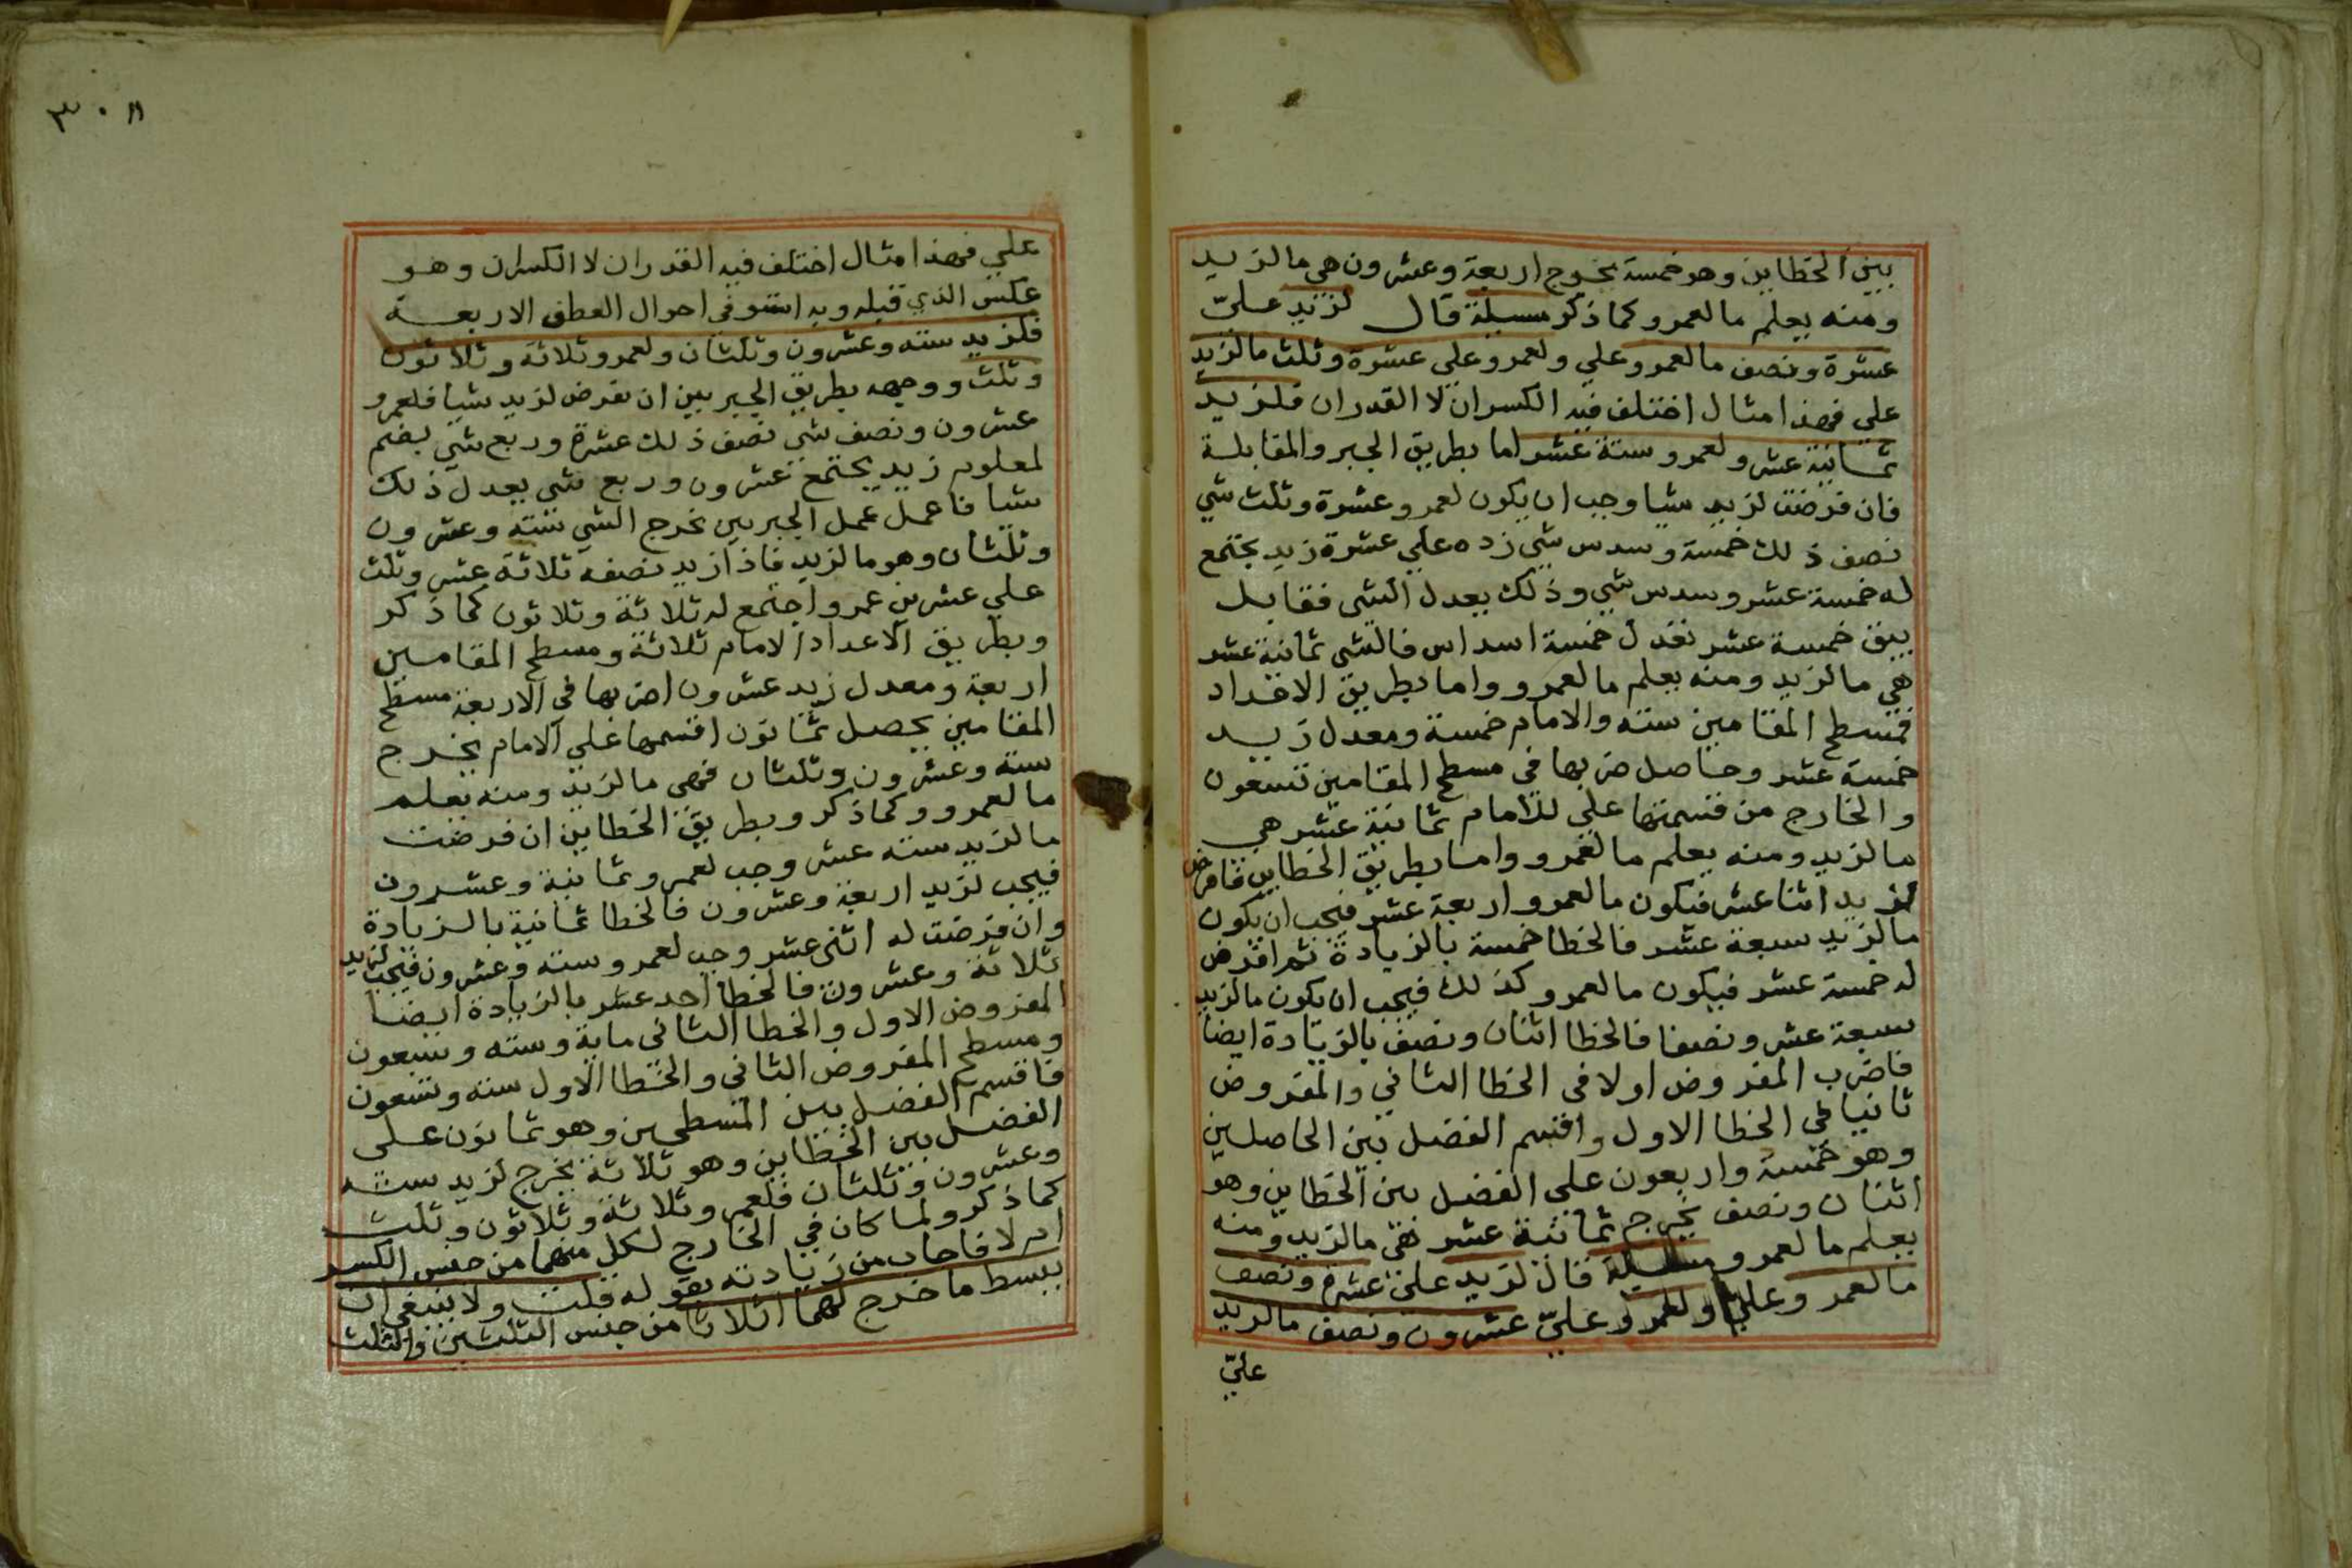 بين الخطاين وهو خمسة يخرج اربعة وعشرون هي ما لزيد
ومنه يعلم ما لعمرو كما ذكر مسيلة قال لزيد عليّ
عشرة ونصف ما لعمرو علي ولعمرو على عشرة وثلث ما لزيد
علي فهذا مثال اختلف فيه الكسران لا القدران فلزيد
ثمانية عشر ولعمرو ستة عشر اما بطريق الجبر والمقابلة
فان فرضت لزيد شيا وجب ان يكون لعمرو عشرة وثلث شي
نصف ذلك خمسة وسدس شي زده علي عشرة زيد يجتمع
له خمسة عشر وسدس شي وذلك يعدل الشي فقابل
يبق خمسة عشر تعدل خمسة اسداس فالشي ثمانية عشر
هي ما لزيد ومنه يعلم ما لعمرو واما بطريق الاعداد
فمسطح المقامين سته والامام خمسة ومعدل زيد
خمسة عشر وحاصل ضربها في مسطح المقامين تسعون
والخارج من قسمتها علي للامام ثمانية عشر هي
ما لزيد ومنه يعلم ما لعمرو واما بطريق الخطاين فافرض
لزيد اثنا عشر فيكون ما لعمرو اربعة عشر فيجب ان يكون
ما لزيد سبعة عشر فالخطا خمسة بالزيادة ثم افرض
له خمسة عشر فيكون ما لعمرو كذلك فيجب ان يكون ما لزيد
سبعة عشر ونصفا فالخطا اثنان ونصف بالزيادة ايضا
فاضرب المفروض اولا في الخطا الثاني والمفروض
ثانيا في الخطا الاول واقسم الفضل بين الحاصلين
وهو خمسة واربعون علي الفضل بين الخطاين وهو
اثنان ونصف يخرج ثمانية عشر هي ما لزيد ومنه
يعلم ما لعمرو مسيلة قال لزيد علي عشرة ونصف
ما لعمرو علي ولعمرو عليّ عشرون ونصف ما لزيد
عليّ
٣٠٨
علي فهذا مثال اختلف فيه القدران لا الكسران وهو
عكس الذي قبله وبه استوفي احوال العطف الاربعة
فلزيد سته وعشرون وثلثان ولعمرو ثلاثة وثلاثون
وثلث ووجهه بطريق الجبر بين ان تفرض لزيد شيا فلعمرو
عشرون ونصف شي نصف ذلك عشرة وربع شي يضم
لمعلوم زيد يجتمع عشرون وربع شي يعدل ذلك
شيا فاعمل عمل الجبريين يخرج الشي سته وعشرون
وثلثان وهو ما لزيد فاذا زيد نصفه ثلاثة عشر وثلث
علي عشرين عمرو اجتمع له ثلاثة وثلاثون كما ذكر
وبطريق الاعداد الامام ثلاثة ومسطح المقامين
اربعة ومعدل زيد عشرون اضربها في الاربعة مسطح
المقامين يحصل ثمانون اقسمها علي الامام يخرج
ستة وعشرون وثلثان فهي ما لزيد ومنه يعلم
ما لعمرو وكما ذكر وبطريق الخطاين ان فرضت
ما لزيد سته عشر وجب لعمرو ثمانية وعشرون
فيجب لزيد اربعة وعشرون فالخطا ثمانية بالزيادة
وان فرضت له اثنى عشر وجب لعمرو سته وعشرون فيجب لزيد
ثلاثة وعشرون فالخطا احد عشر بالزيادة ايضا
المفروض الاول والخطا الثاني ماية وسته وسبعون
ومسطح المفروض الثاني والخطا الاول سته وتسعون
فاقسم الفضل بين المسطحين وهو ثمانون على
الفضل بين الخطاين وهو ثلاثة يخرج لزيد سته
وعشرون وثلثان فلعمرو ثلاثة وثلاثون وثلث
كما ذكر ولما كان في الخارج لكل منهما من جنس الكسر
ام لا فاجاب من زيادته بقوله قلت ولا ينبغي ان
يبسط ما خرج لهما اثلاثا من جنس الثلثين والثلث